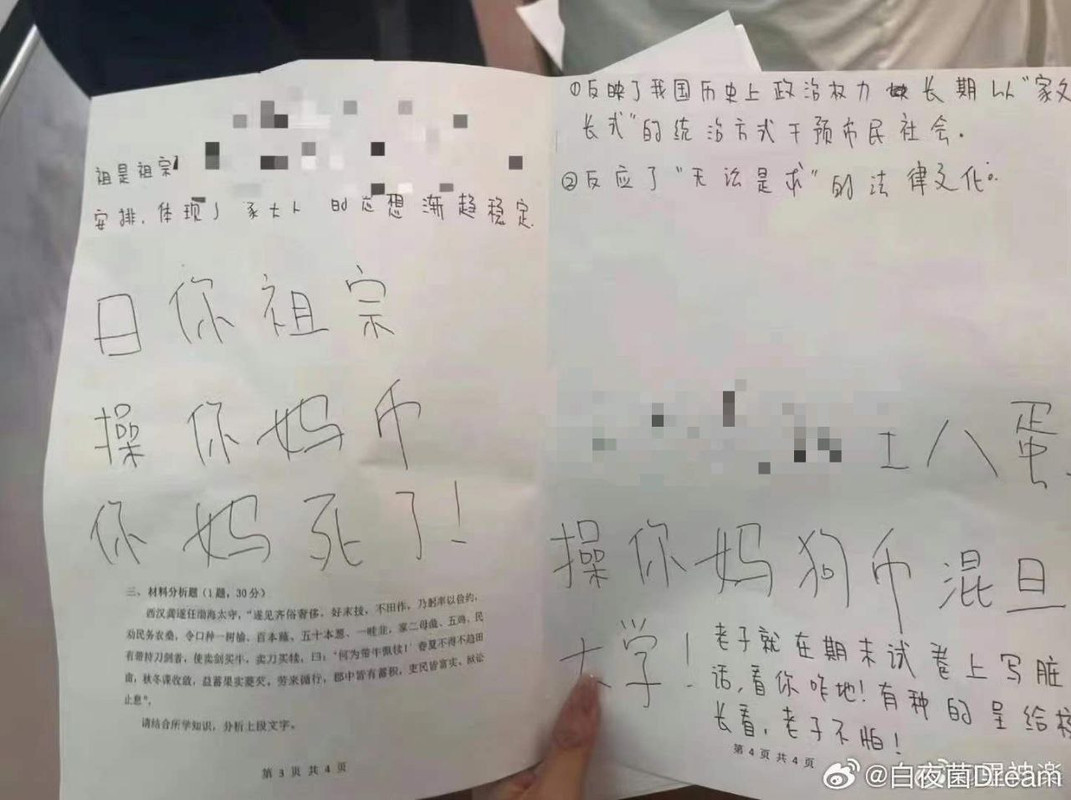 祖是祖宗
安排,体现了 士人 的 想 渐趋稳定.
日你祖宗
操你妈币
你妈死了!
三、材料分析题(1题,30分)
西汉龚遂任渤海太守,“遂见齐俗奢侈,好末技,不田作,乃躬率以俭约,
劝民务农桑,令口种一树榆、百本薤、五十本葱、一畦韭,家二母彘、五鸡。民
有带持刀剑者,使卖剑买牛,卖刀买犊,曰:‘何为带牛佩犊!’春夏不得不趋田
亩,秋冬课收敛,益蓄果实菱芡。劳来循行,郡中皆有蓄积,吏民皆富实。狱讼
止息”。
请结合所学知识,分析上段文字。
第 3 页 共 4 页
①反映了我国历史上政治权力 长期以“家父
长式”的统治方式干预市民社会.
②反应了“无讼是求”的法律文化。
王八蛋
操你妈狗币混旦
大学!
老子就在期末试卷上写脏
话,看你咋地!有种的呈给校
长看,老子不怕!
第 4 页 共 4 页
@白夜菌Dream